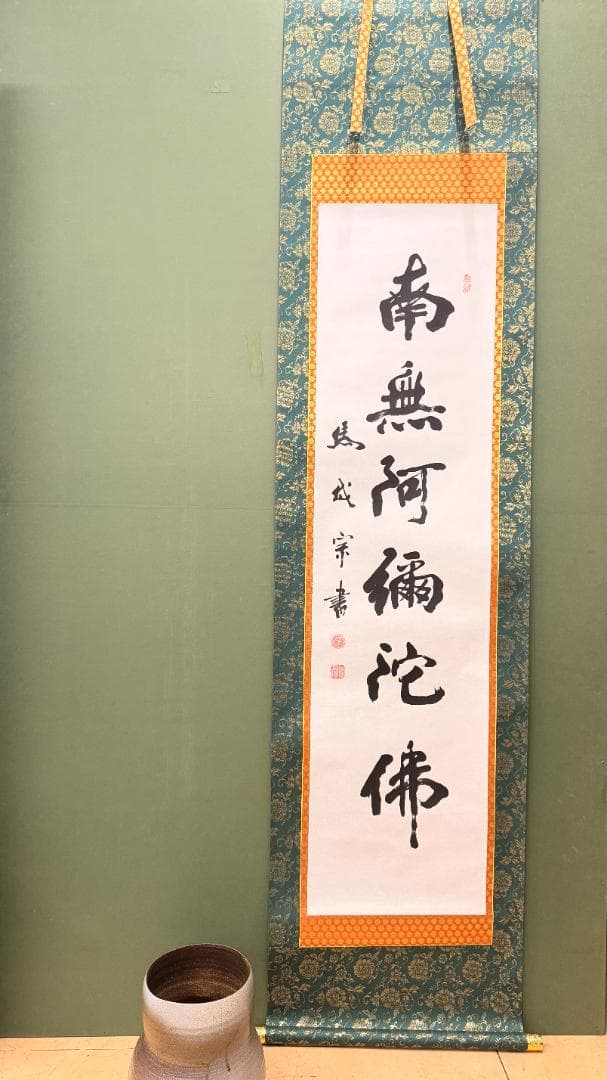 南無阿彌陀佛
馬成宗書